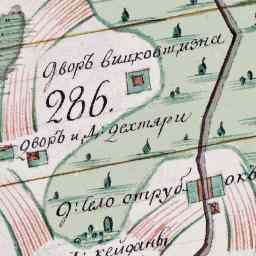 Дворъ вицковтизна
286.
дворъ и Д: дехтяри
д: Село отруб
Д: кейданы